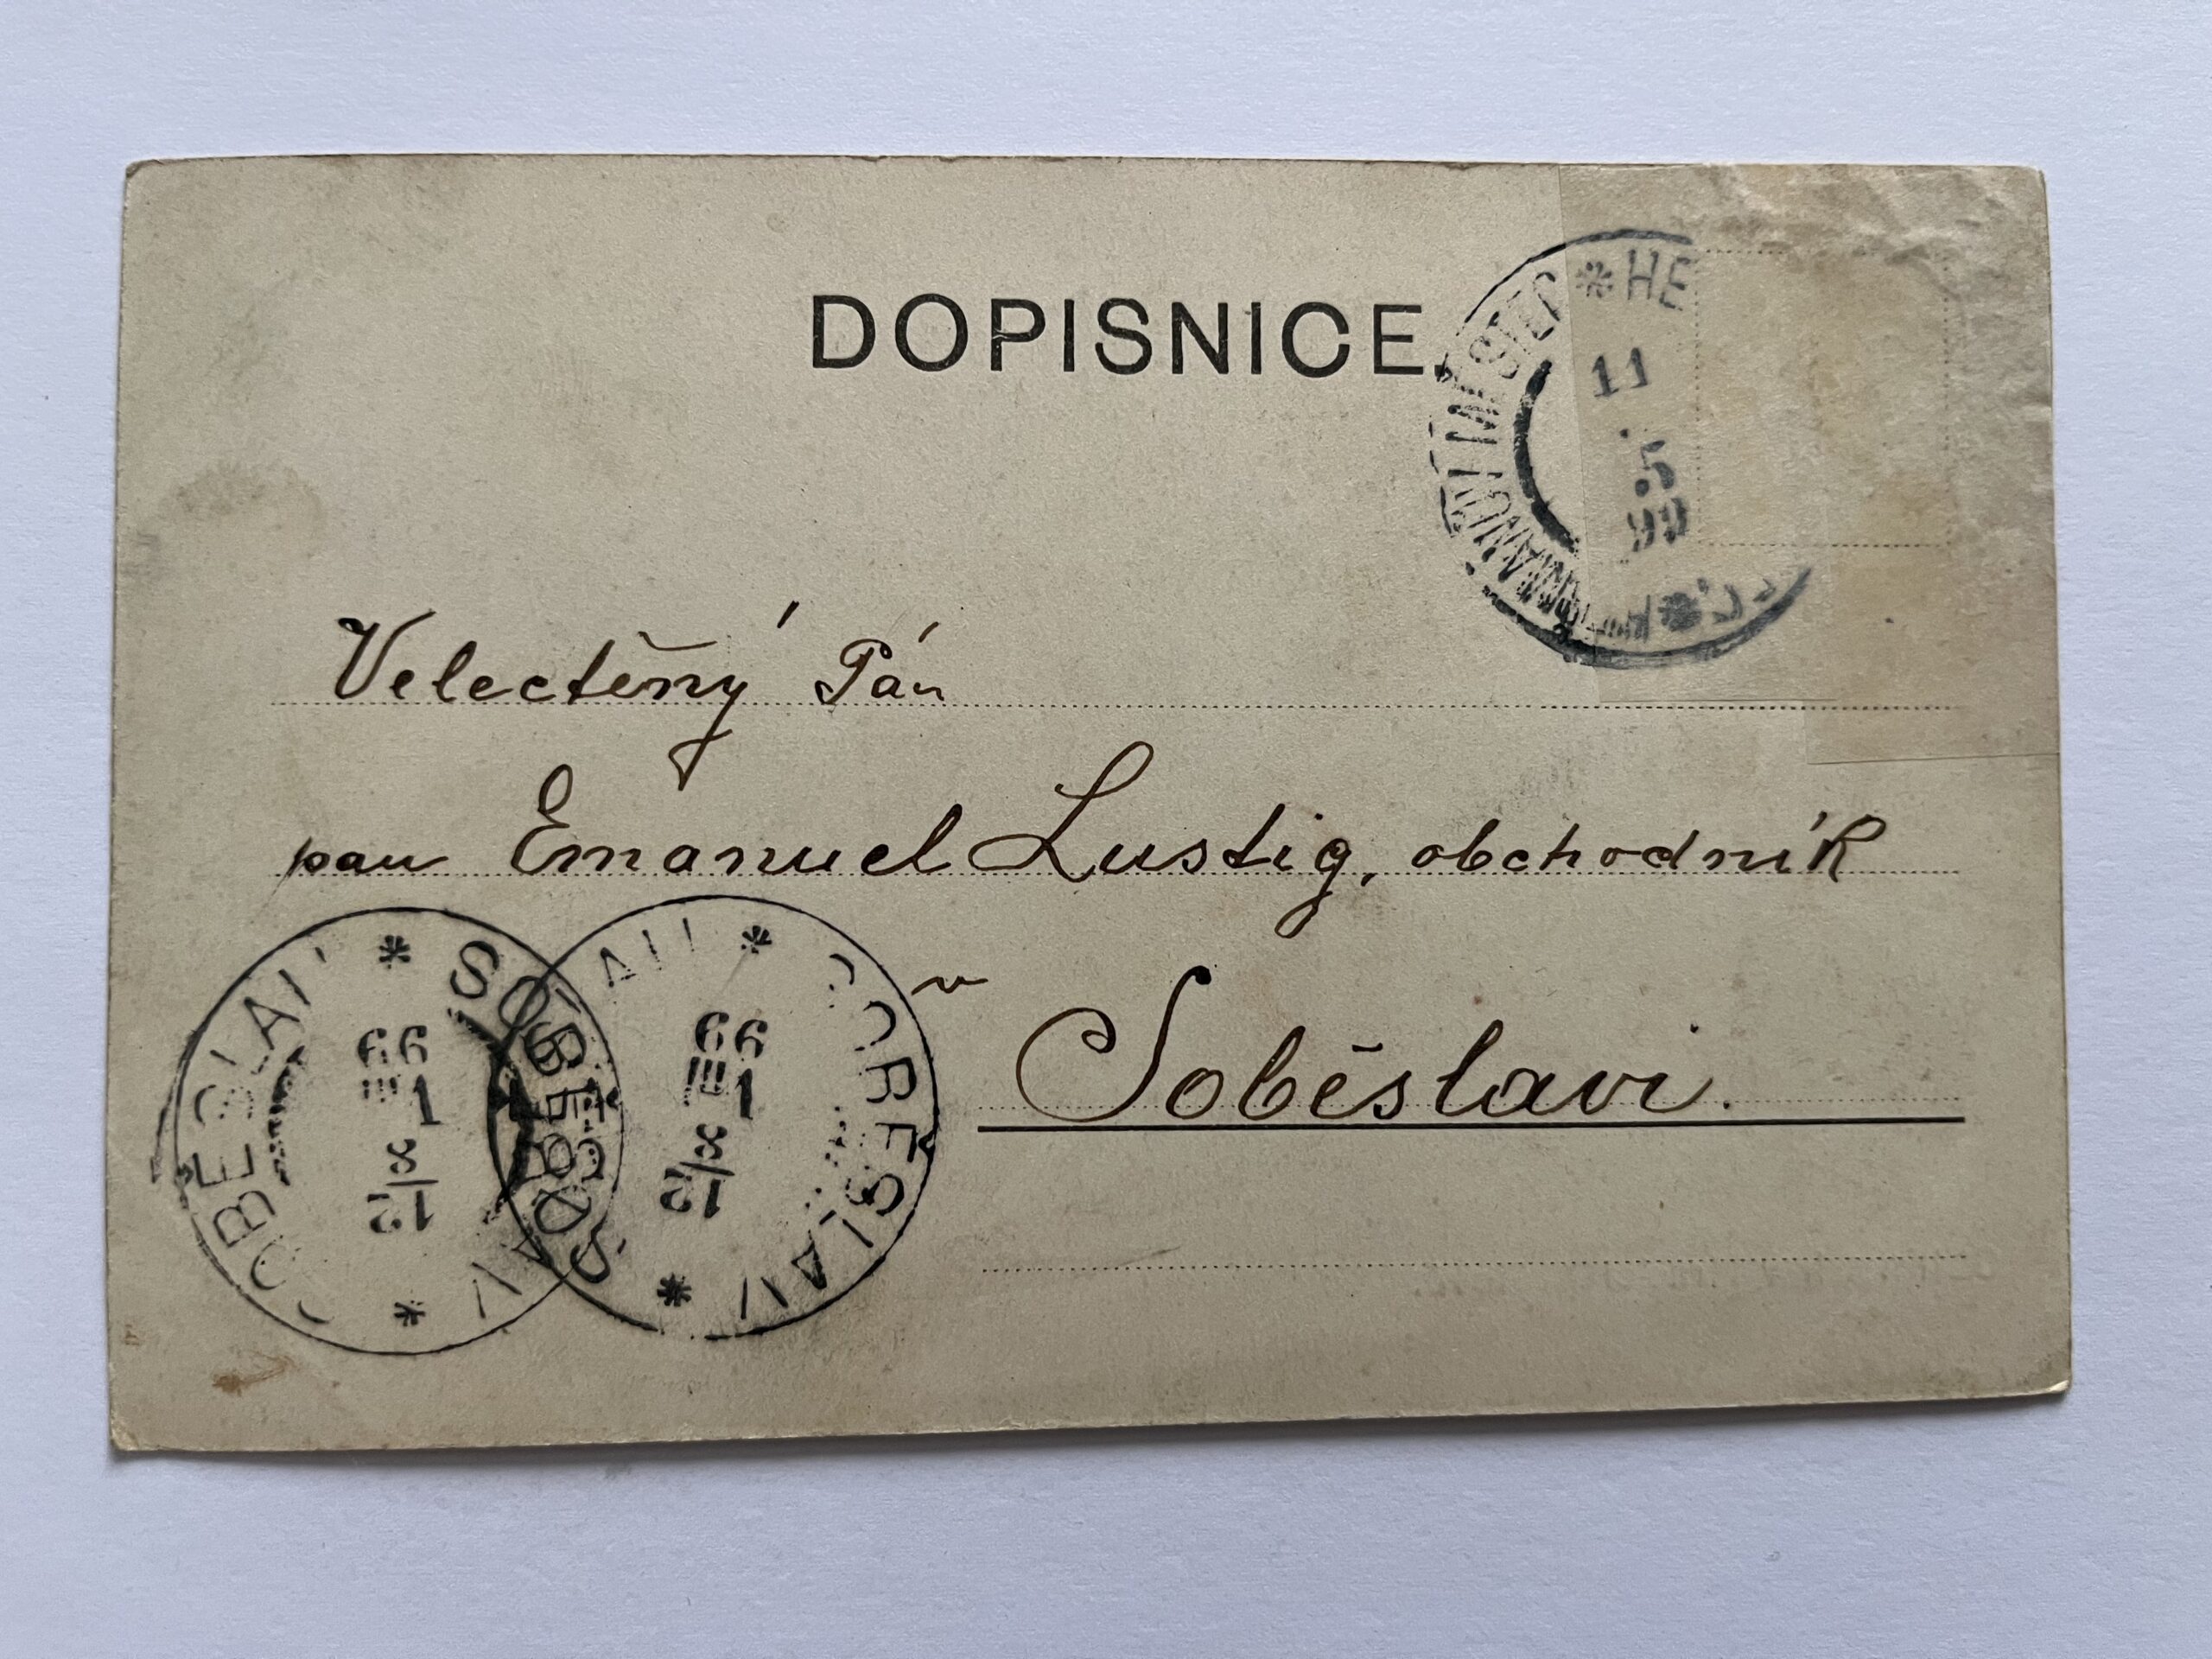 DOPISNICE.
* HE
HEŘMANŮV MĚSTEC
11
5
99
Velectěný Pán
pan Emanuel Lustig, obchodník
v
Soběslavi.
* SOBĚSLAU * SOBĚSLAV
12/8
1 III
99
* SOBĚSLAU * SOBĚSLAV
12/8
1 III
99